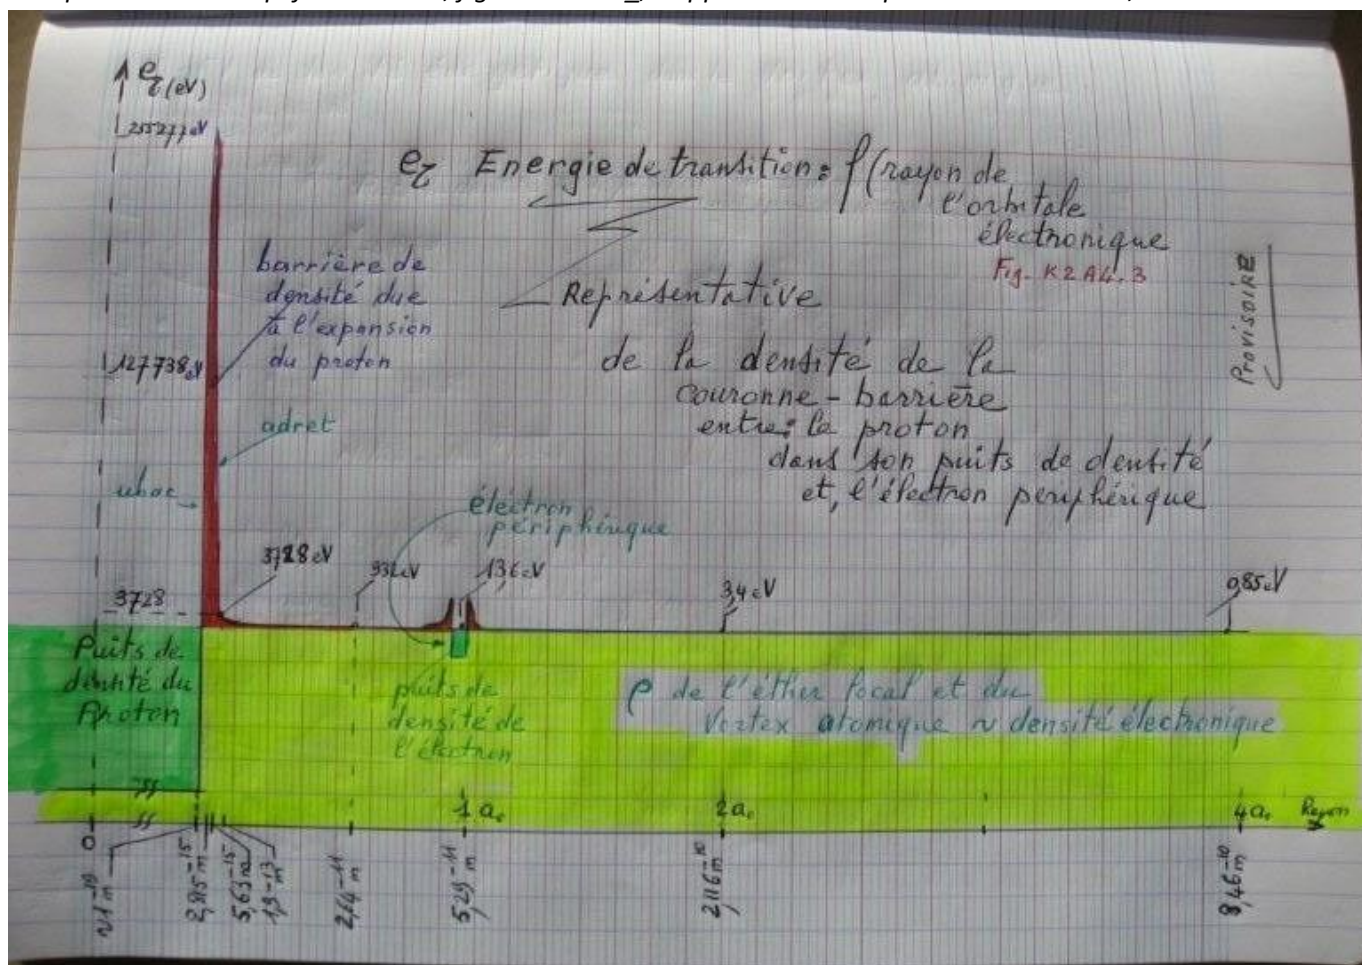 e_τ (eV)
255277 eV
e_τ Energie de transition = f (rayon de
l'orbitale
électronique
Fig. K2 A4.3
PROVISOIRE
barrière de
densité due
à l'expansion
du proton
Représentative
127738 eV
de la densité de la
couronne - barrière
entre: le proton
dans son puits de densité
et, l'électron périphérique
adret
ubac
électron
périphérique
3728 eV
13,6 eV
3,4 eV
0,85 eV
3728
Puits de
densité du
Proton
puits de
densité de
l'électron
ρ de l'éther focal et du
Vortex atomique ~ densité électronique
1 a₀
2 a₀
4 a₀
Rayon
0
~1⁻¹⁹ m
5,63⁻¹⁵ m
1,9⁻¹³ m
2,64⁻¹¹ m
5,29⁻¹¹ m
2,116⁻¹⁰ m
8,46⁻¹⁰ m